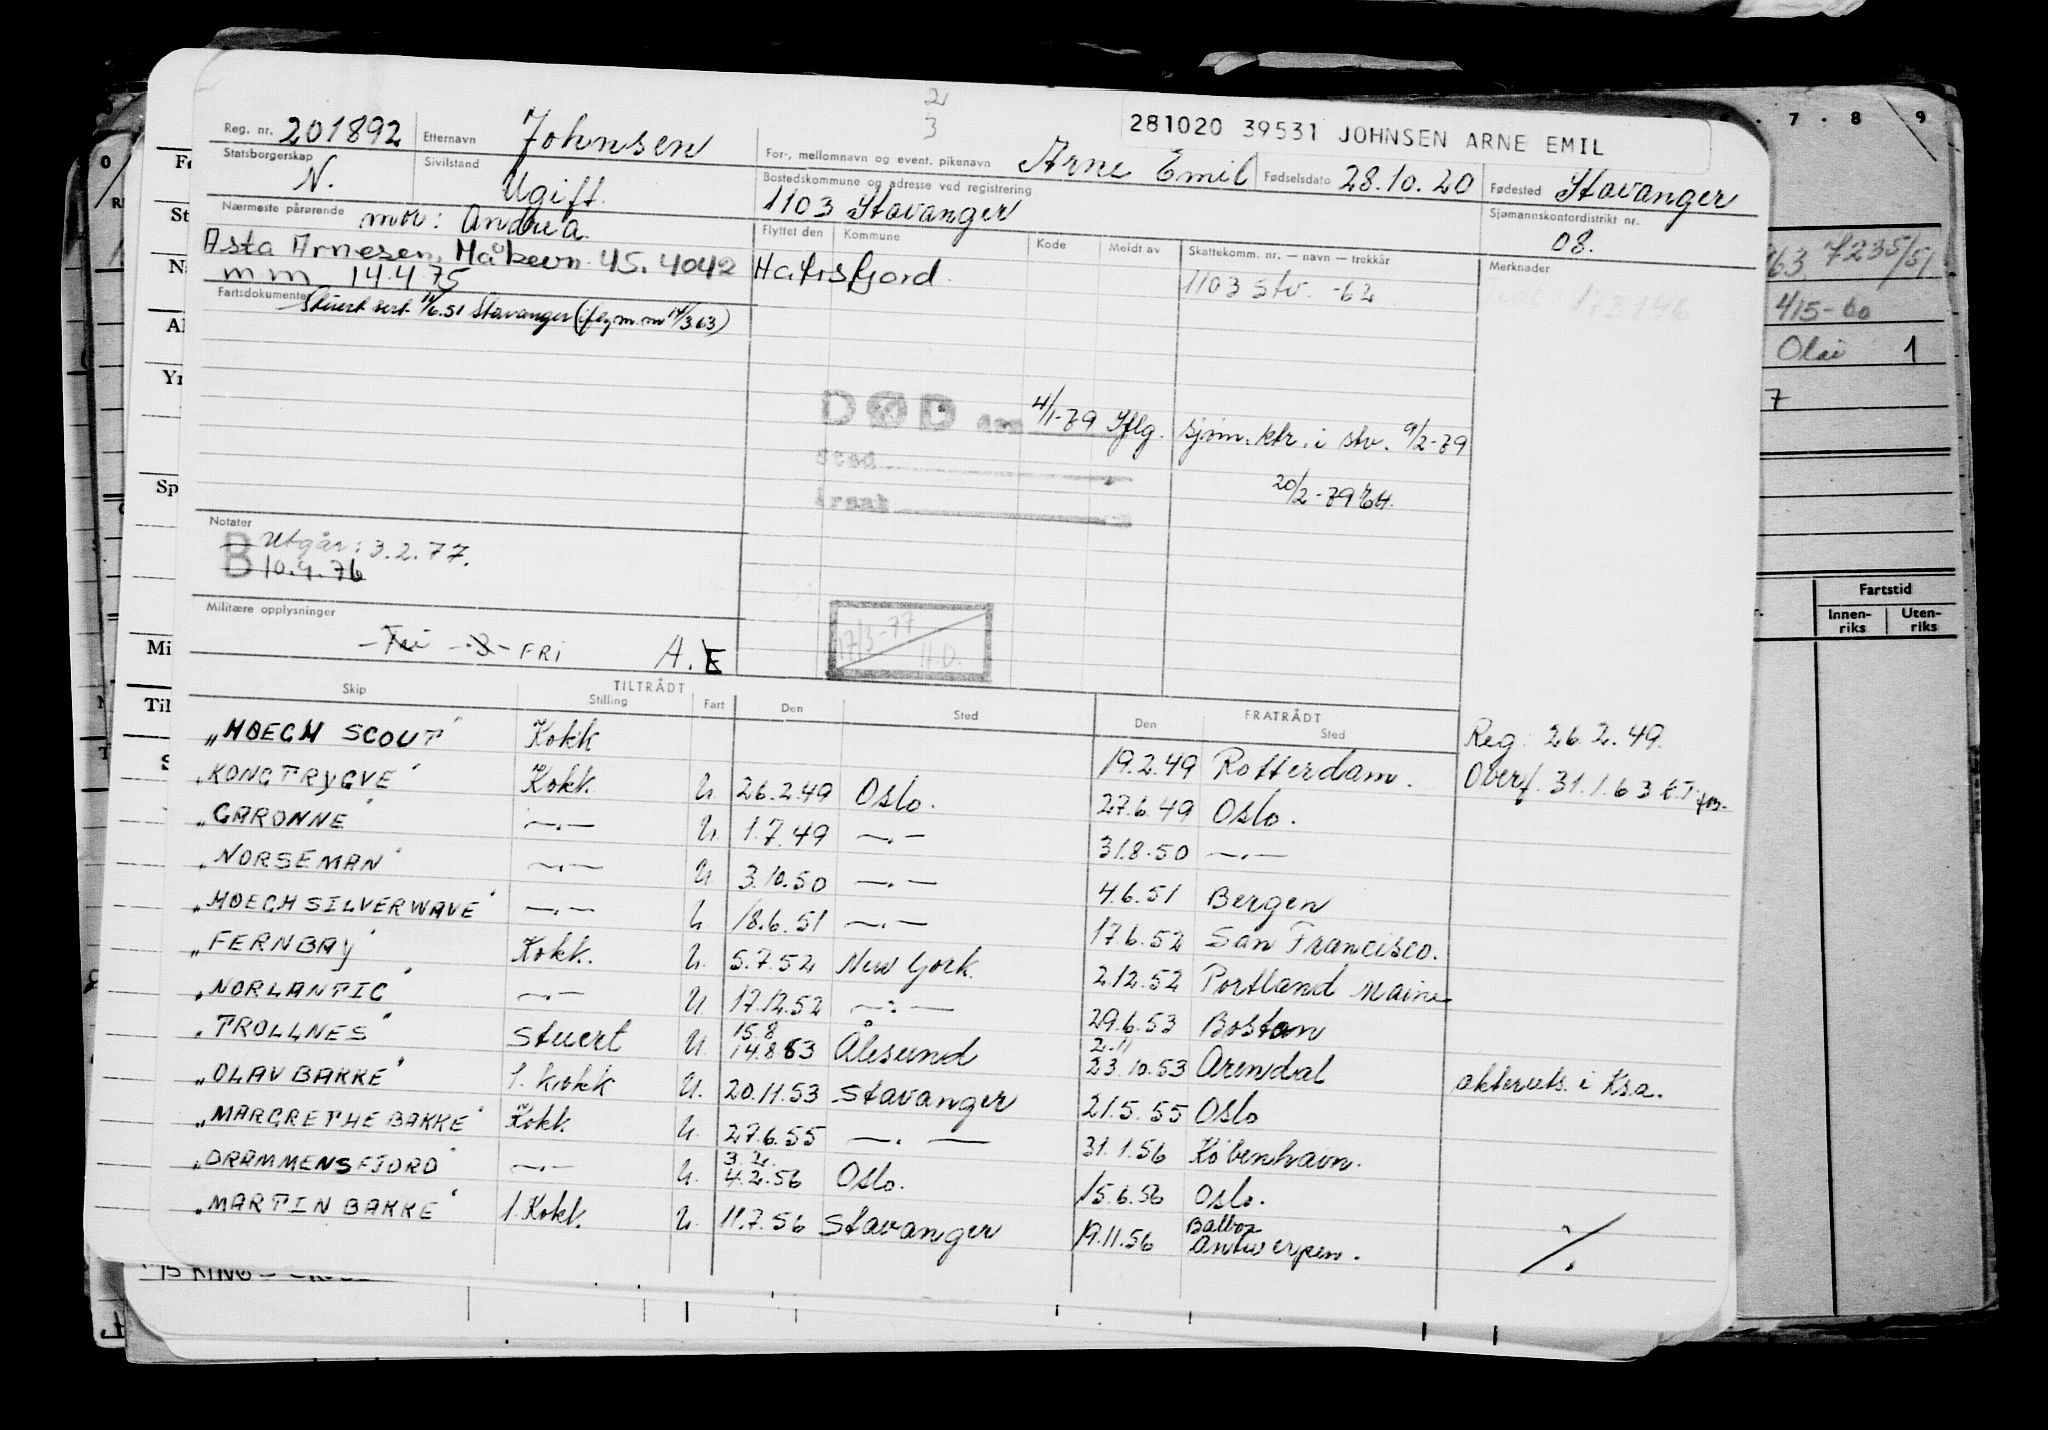 2
3
281020 39531 JOHNSEN ARNE EMIL
Reg. nr. 201892 Etternavn Johnsen For-, mellomnavn og event. pikenavn Arne Emil Fødselsdato 28.10.20 Fødested Stavanger
Statsborgerskap N. Sivilstand Ugift. Bostedskommune og adresse ved registrering 1103 Stavanger Sjømannskontordistrikt nr. 08.
Nærmeste pårørende mor: Andrea Flyttet den Kommune Kode Meldt av Skattekomm. nr. — navn — trekkår Merknader
Asta Arnesen, Måkevn. 45. 4042 Hafrsfjord. 1103 Stv. -62
m m 14.4.75 173146
Fartsdokumenter Stuert sert. 11/6.51 Stavanger (iflg m.m 14/3 63)
DØD den 4/1-79 Iflg. sjøm. ktr. i stv. 9/2-79
Sted
Årsak
20/2-79
Notater
B Utgår: 3.2.77.
10.4.76
Militære opplysninger
Fri -3- FRI A.E
17/3-77
H.D.
Skip TILTRÅDT Stilling Fart Den Sted FRATRÅDT Den Sted
"HØEGH SCOUT" Kokk 19.2.49 Rotterdam. Reg. 26.2.49.
"KONG TRYGVE" Kokk U. 26.2.49 Oslo. 27.6.49 Oslo. Overf. 31.1.63
"GARONNE" —.— U. 1.7.49 —.— 31.8.50 —.—
"NORSEMAN" —.— U. 3.10.50 —.— 4.6.51 Bergen
"HØEGH SILVERWAVE" —.— U. 18.6.51 —.— 17.6.52 San Francisco.
"FERNBAY" Kokk. U. 5.7.52 New York. 2.12.52 Portland Maine
"NORLANTIC" —.— U 17.12.52 —.— 29.6.53 Boston
"TROLLNES" Stuert U. 15.8 14.8 53 Ålesund 2.11 23.10.53 Arendal
"OLAV BAKKE" 1. kokk U. 20.11.53 Stavanger 21.5.55 Oslo akterut. i Ksa.
"MARGRETHE BAKKE" Kokk U. 27.6.55 —.— 31.1.56 København.
"DRAMMENSFJORD" —.— U. 3.2. 4.2.56 Oslo. 15.6.56 Oslo.
"MARTIN BAKKE" 1. Kokk. U. 11.7.56 Stavanger 19.11.56 Balboa Antwerpen. ./.
0
7 8 9
7235/51
415-60
Olai 1
7
Fartstid
Innen-
riks
Uten-
riks
St
Yr
Sp
Mi
Til